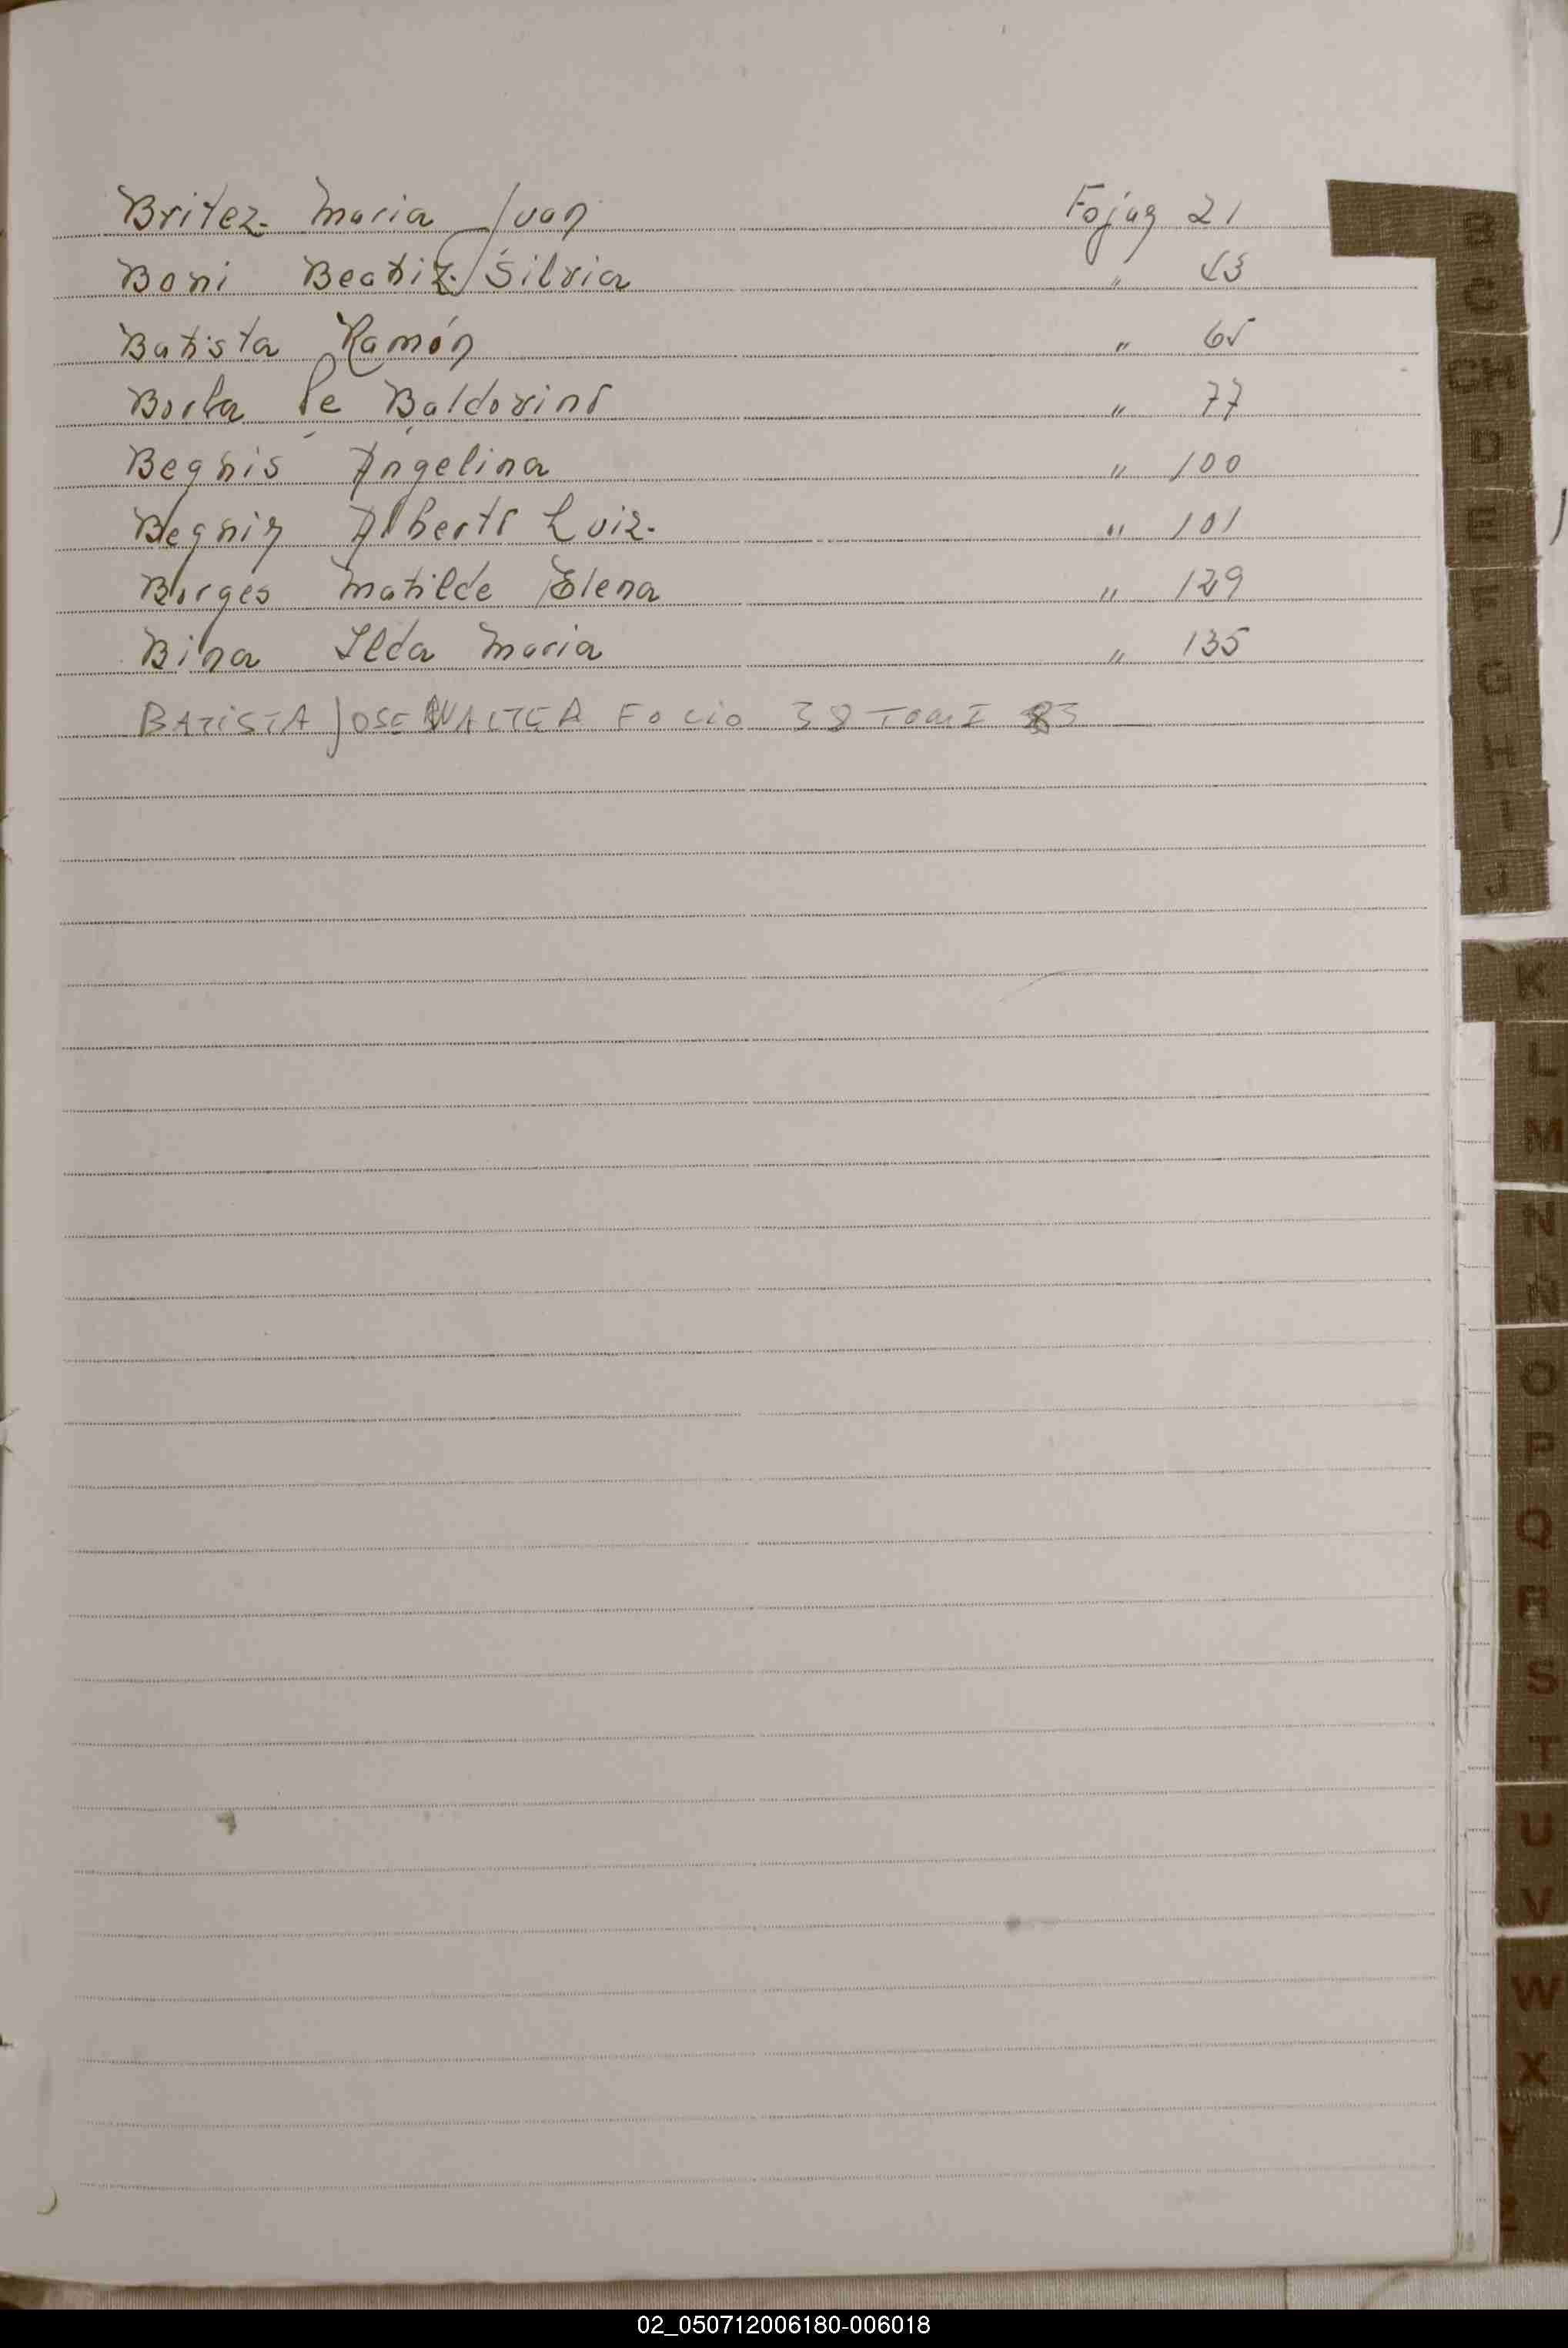 Britez. Maria Juan Fojas 21
Boni Beatriz Silvia " 53
Batista Ramón " 65
Borla de Baldovino " 77
Beghis Angelina " 100
Beghin Alberto Luiz. " 101
Borges Matilde Elena " 129
Bina Ilda Maria " 135
BATISTA JOSE WALTER FOLIO 38 TOMI 83
B
C
CH
D
E
F
G
H
I
J
K
L
M
N
Ñ
O
P
Q
R
S
T
U
V
W
X
Y
Z
02_050712006180-006018